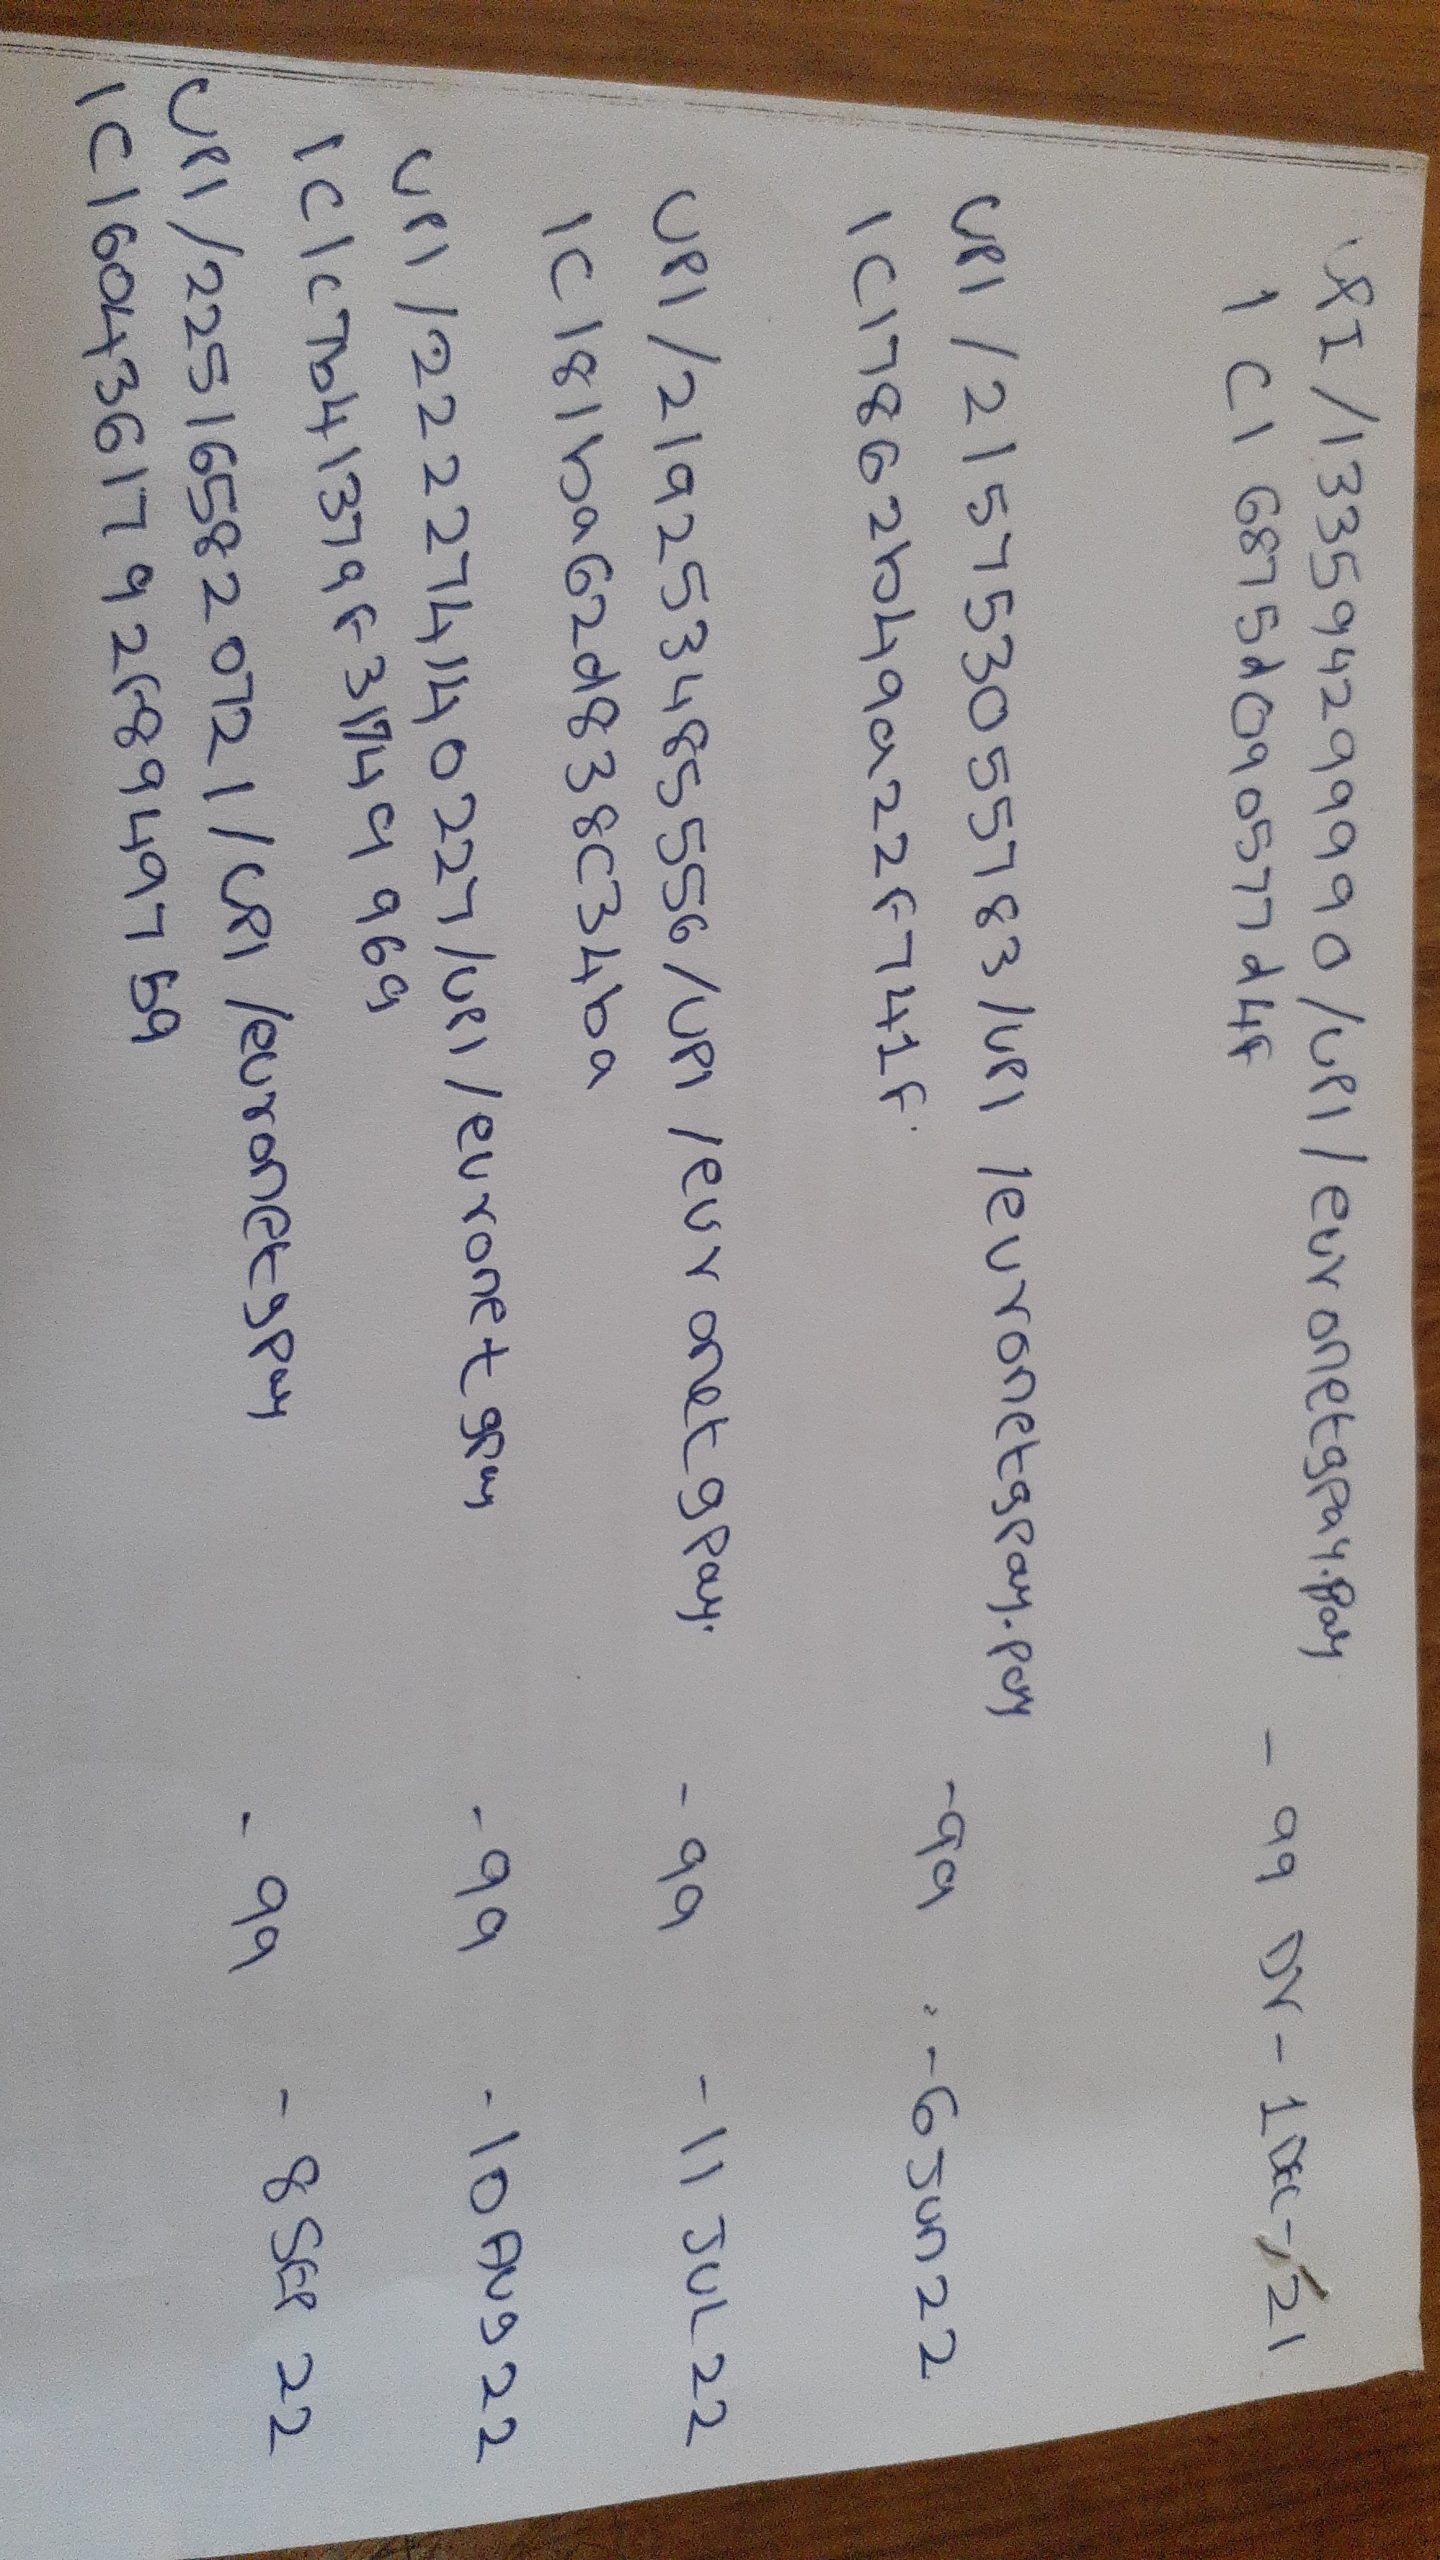 UPI /133594299990/UPI/euronetgpay.pay - 99 Dr - 1 Dec-/21
1 C1 6875d0909577d4f
UPI / 215753055783/UPI /euronetgpay.pay -99 - 6 Jun 22
1 C17862b49a22F741F.
UPI /219253485556/UPI /euronetgpay. - 99 - 11 JUL 22
1C181ba62d838C34ba
UPI /222274140227/UPI /euronet gpay - 99 - 10 Aug 22
1C1C7b41379F31749969
UPI /225165820721/UPI /euronetgpay - 99 - 8 SEP 22
1C1604361792F8949759